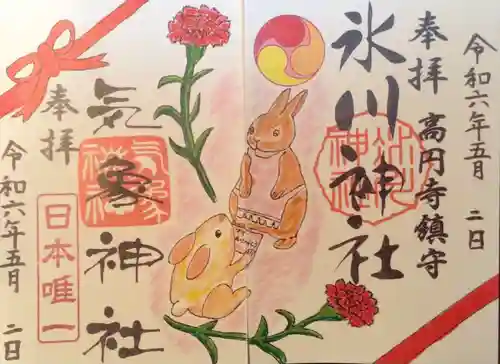 令和六年五月 二日
奉拝 高円寺鎮守
氷川神社
気象神社
奉拝
日本唯一
令和六年五月 二日